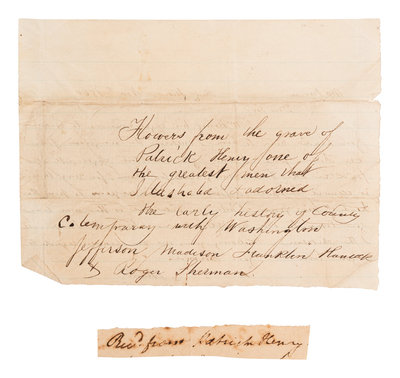 Flowers from the grave of
Patrick Henry one of
the greatest men that
adorned
the early history of County
Cotemporary with Washington
Jefferson Madison Franklin Hancock
& Roger Sherman
Recd. from Patrick Henry